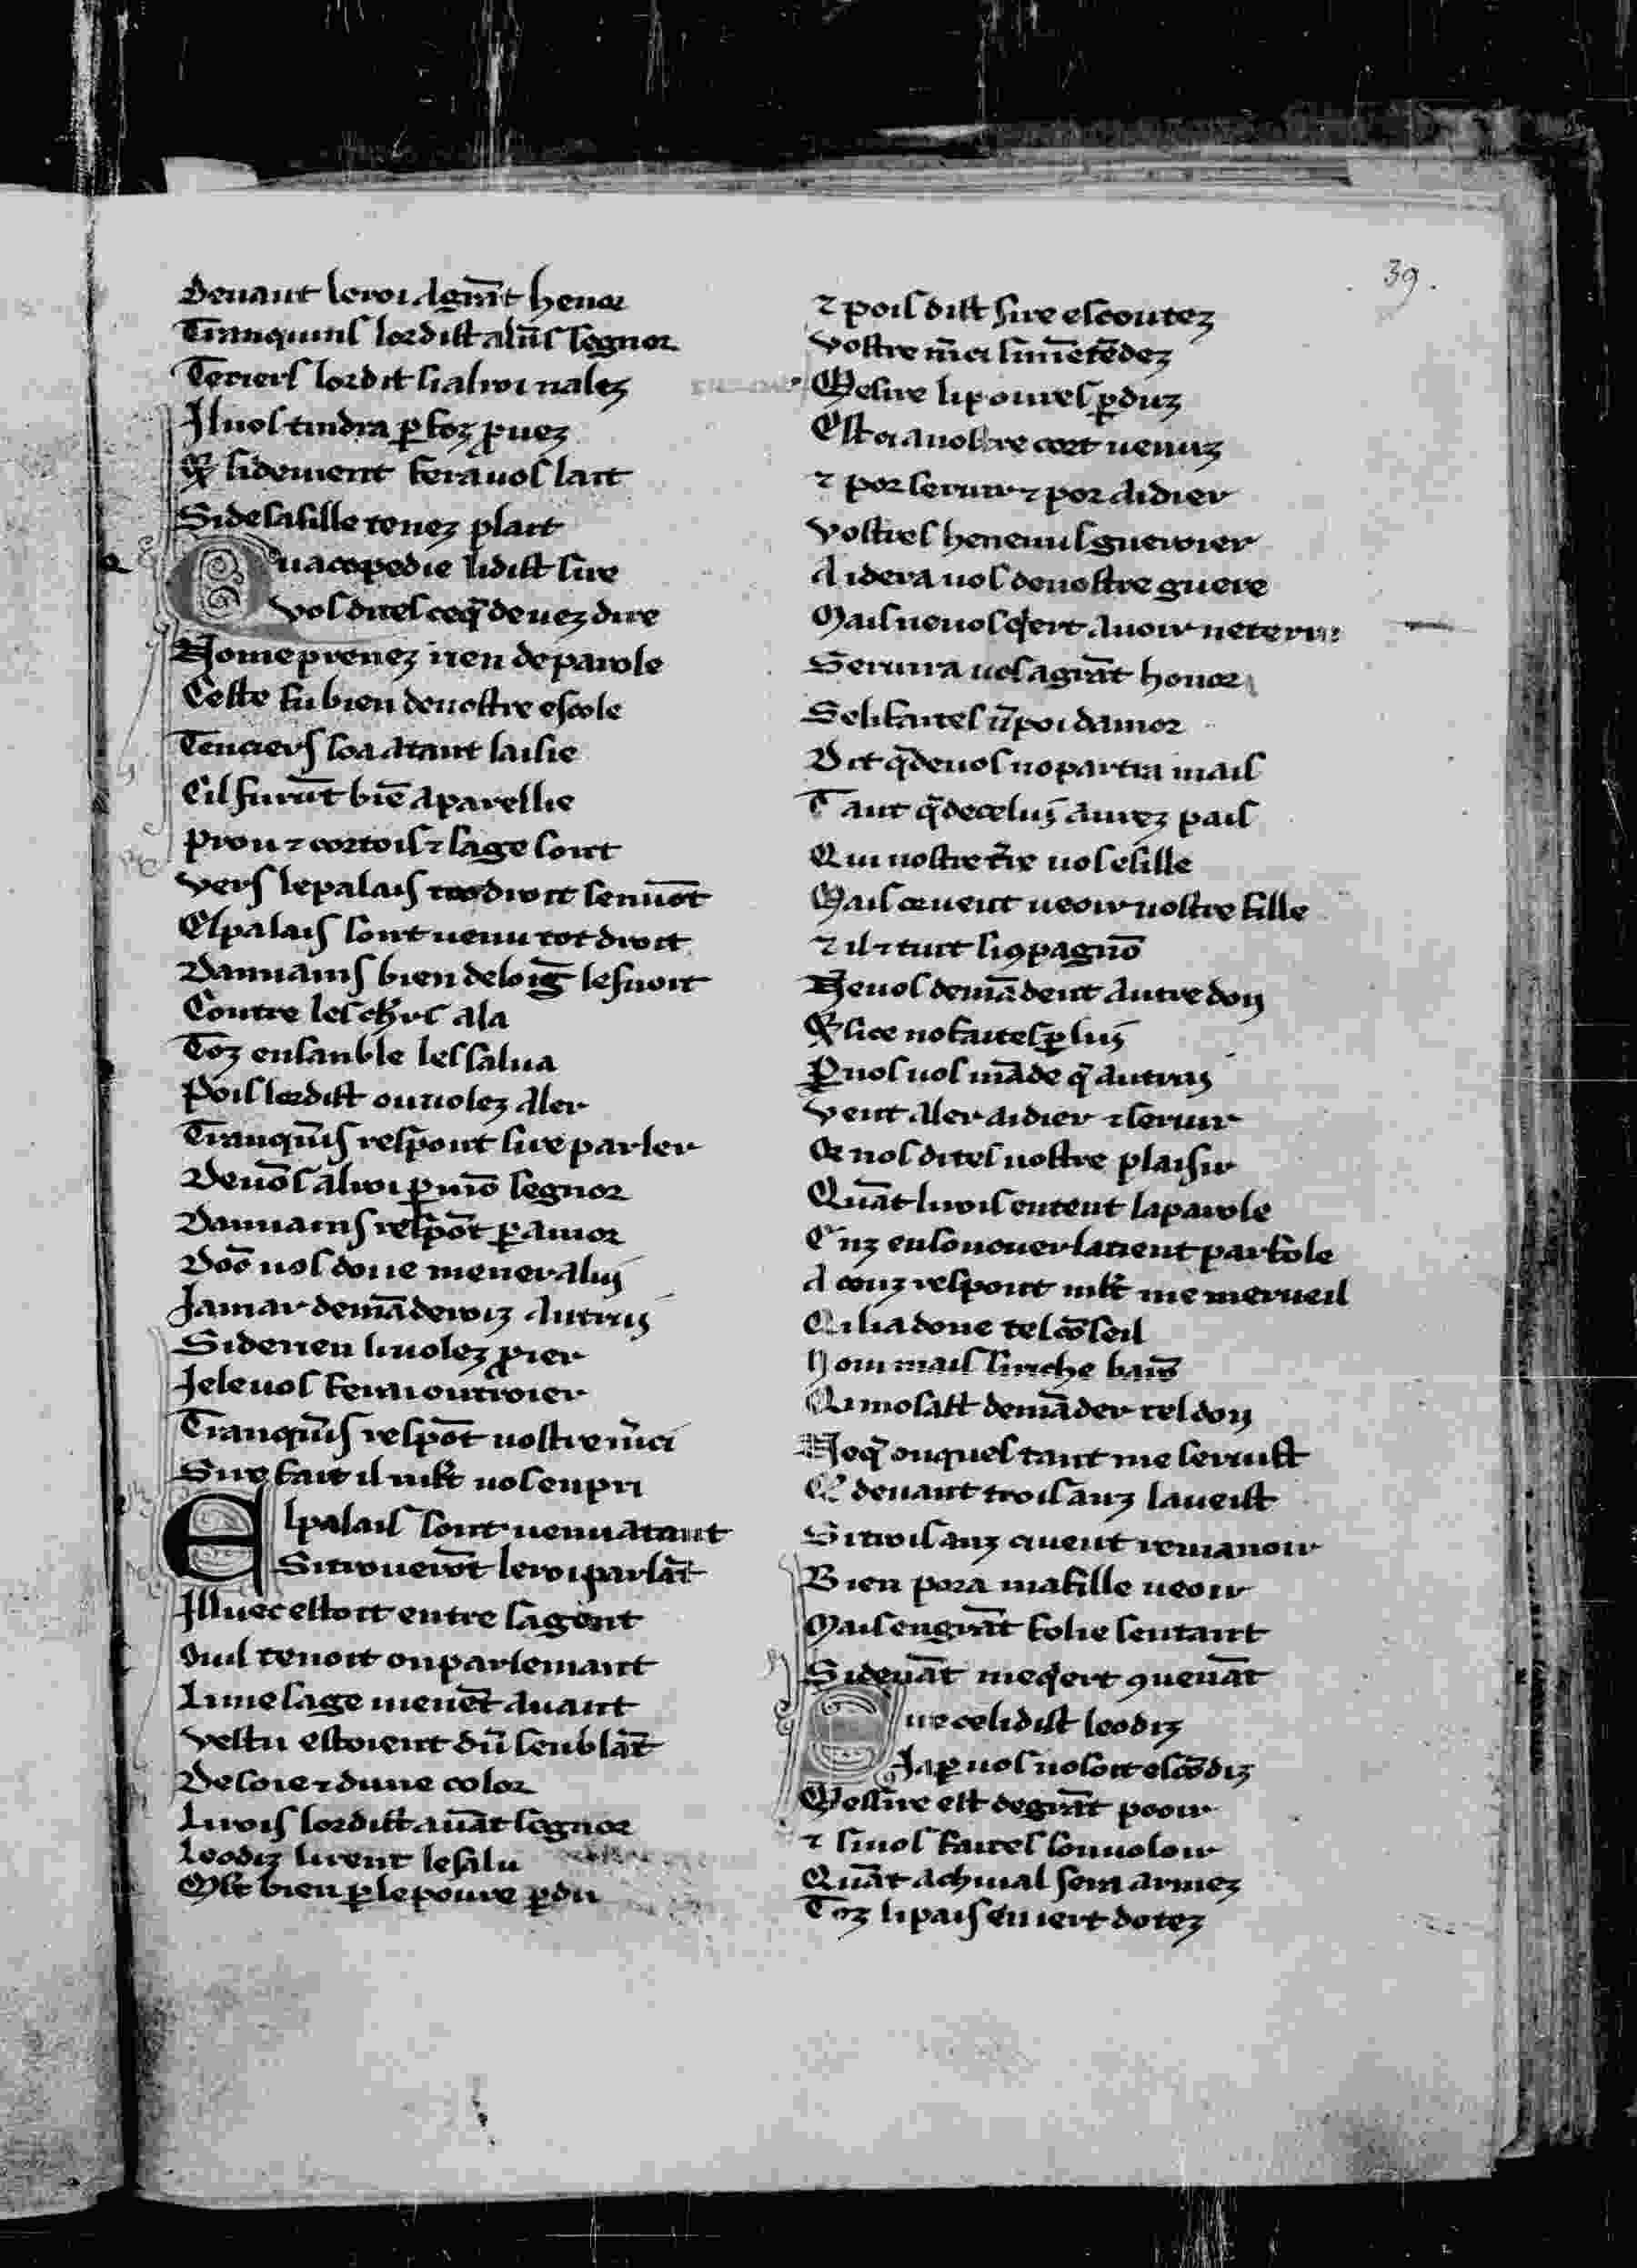 39.
Deuant le roi a grāt henor
Tranquins lor dist alūs segnor
Terciers lor dit si al roi nalez
Il uos tindra ꝑ foz ꝓuez
Qͥ sidement fera uos lait
Si de sa fille tenez plait
Quacopedie li dist sire
Vos dites ceq̄ deuez dire
No me prenez ren de parole
Ceste fu bien de uostre escole
Terciers loa atant laisie
Cil furūt biē aparellie
Prou ⁊ cortois ⁊ sage sont
Vers le palais tot droit senuōt
El palais sont uenu tot droit
Dannains bien de loīg les uoit
Contre les chrs ala
Toz ensanble les salua
Pois lor dist ou uolez aler
Tranquīs respont sire parler
Deuōs al roi ꝑ mō segnor
Dannains respōt ꝑ amor
Doō uos doue mener a lui
Ja mar demāderoiz autrui
Si de rien li uolez ꝓier
Je le uos ferai outroier
Tranquīs respōt uostre m̄ci
Sire fait il mlt uos en pri
El palais sont uenu atant
Si trouerōt le roi parlāt
Illuec estoit entre sa gent
Ouil tenoit on parlemant
Li mesage menēt auant
Vestu estoient dū senblāt
De soie ⁊ dune color
Li rois lor dist auāt segnor
Leodiz li rent le salu
Mlt bien ꝑ le poure ꝑdu
⁊ pois dist sire escoutez
Vostre m̄ci si mētēdez
Mesire li poures ꝑduz
Est ci a uostre cort uenuz
⁊ por seruir ⁊ por aidier
Vostres henemis guerroier
Aidera uos de uostre guere
Mais ne uos qͥert auoir ne terre
Seruira uos a grāt honor
Se li faites ū poi damor
Dit q̄ de uos no partira mais
Tant q̄ de celui aurez pais
Qui uostre t̄re uos esille
Mais ce uent ueoir uostre fille
⁊ il ⁊ tuit si ꝯpagnō
Ne uos demādent autre don
Qͥ si ce no faites ꝑ lui
Ꝑ uos uos māde q̄ autrui
Vent aler aidier ⁊ seruir
Or nos dites uostre plaisir
Quāt li rois entent la parole
Enz en son cuer la tient par fole
A couz respont mlt me merueil
Qi li a done tel cōseil
Non mais si riche barō
Qi mosast demāder tel don
Neq̄ onques tant me seruist
Qͥ deuant trois anz la ueist
Si trois anz cuent remanoir
Bien pora ma fille ueoir
Mais en grāt folie sentant
Si deuāt me qͥert ꝯuenāt
Sire ce li dist leodiz
Ja ꝑ uos no soit escōdiz
Mesire est de grāt pooir
⁊ si uos faites son uoloir
Quāt a chiual sera armez
Toz li pais en iert dotez